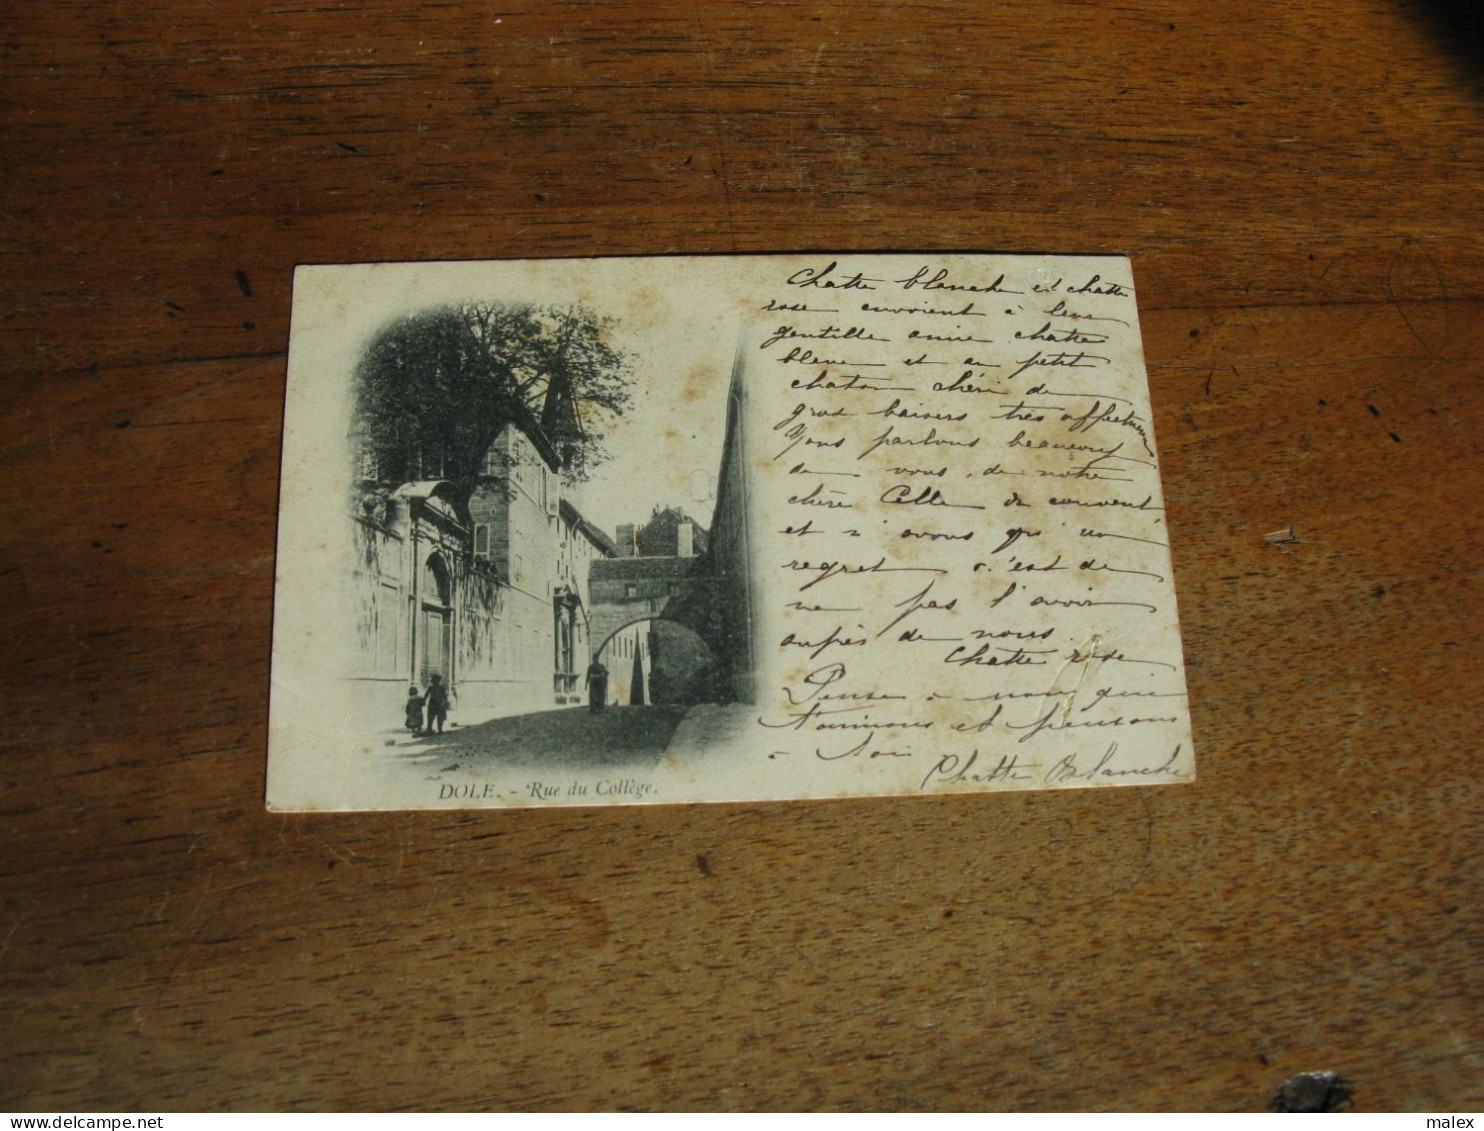 Chatte blanche et chatte
rose envoient à leur
gentille amie chatte
bleue et au petit
chaton chéri de
gros baisers très affectueux
Nous parlons beaucoup
de vous, de notre
chère Celle de couvent
et n'avons qu'un
regret c'est de
ne pas l'avoir
auprès de nous.
Chatte rose
Pense à nous qui
t'aimons et pensons
à toi
Chatte Blanche
DOLE. - Rue du Collège.
delcampe.net
malex